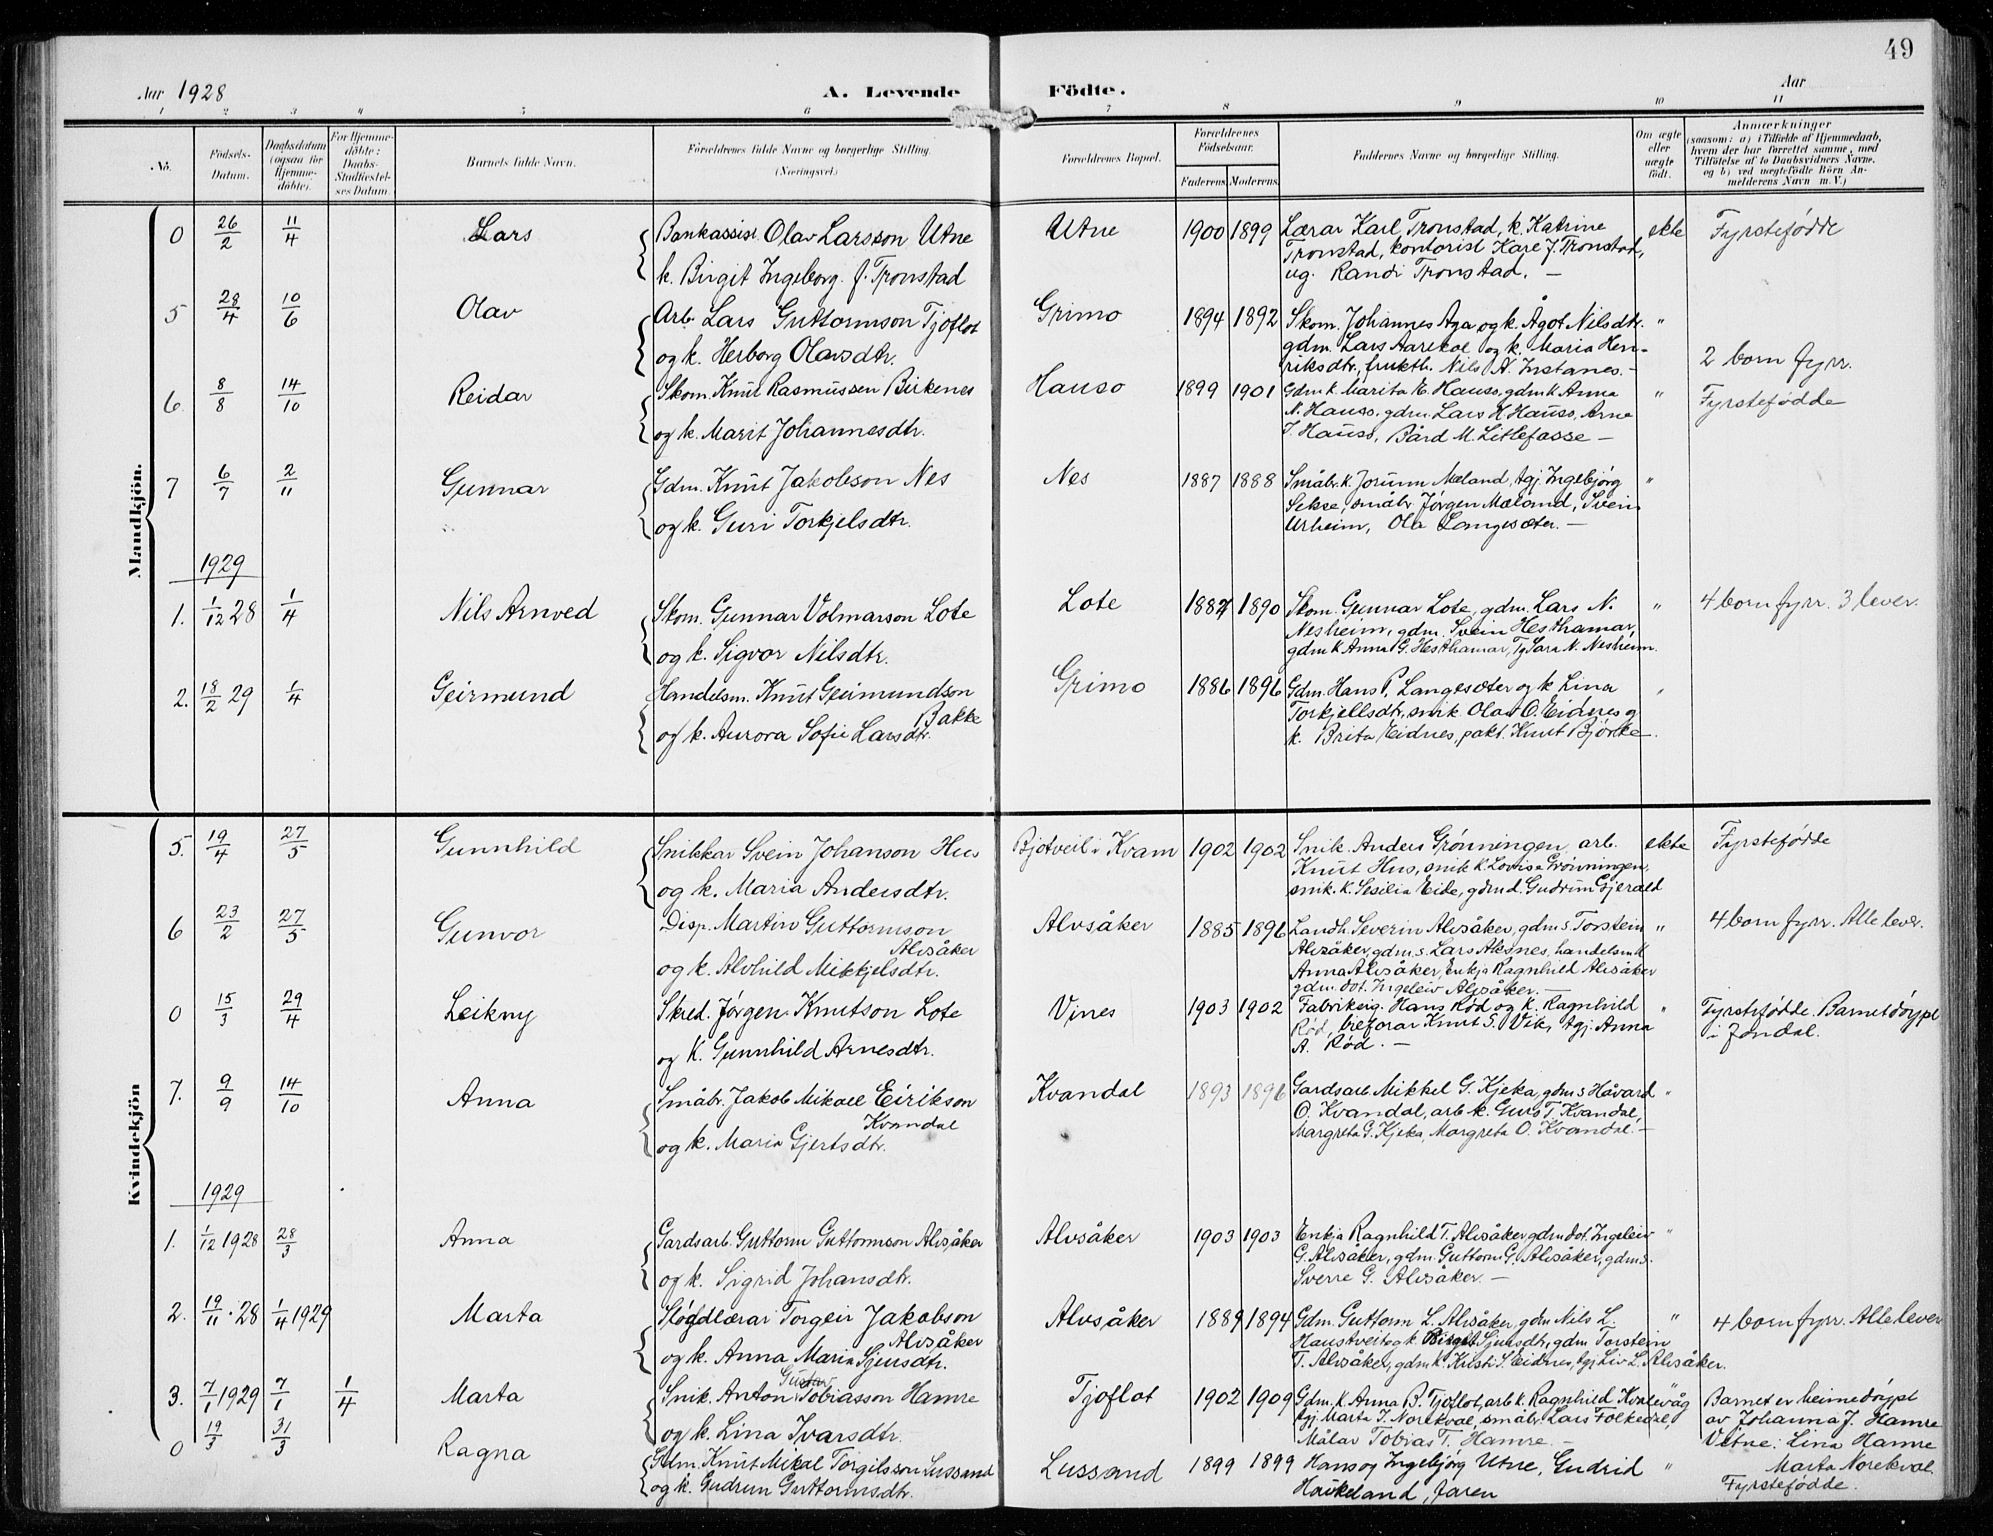 49
Aar 1928
A. Levende Födte.
Aar
1 2 3 " 5 6 7 8 9 10 11
No.
Födsels-Datum.
Daabsdatum (ogsaa for Hjemme-döbte).
For Hjemme-döbte: Daabs-Stadfæstel-ses Datum.
Barnets fulde Navn.
Forældrenes fulde Navne og borgerlige Stilling. (Næringsvei.)
Forældrenes Bopæl.
Forældrenes Födselsaar.
Faderens. Moderens.
Faddernes Navne og borgerlige Stilling.
Om ægte eller uægte födt.
Anmærkninger
(saasom: a) i Tilfælde af Hjemmedaab, hvem der har forrettet samme, med Tilföielse af to Daabsvidners Navne, og b) ved uægtefödte Börn An-melderens Navn m. V.)
Mandkjön.
0 26/2 11/4 Lars Bankassist. Olav Larsson Utne Utne 1900 1899 Lærar Karl Tronstad, k. Katrine ekte Fyrstefødde
Tronstad, kontorist Kare J. Tronstad,
k. Birgit Ingeborg f. Tronstad ug. Randi Tronstad. —
5 28/4 10/6 Olav Arb. Lars Guttormson Tjoflot Grimo 1894 1892 Skom. Johannes Aga og k. Ågot Nilsdtr. "
gdm. Lars Aarekol og k. Maria Hen-
og k. Herborg Olavsdtr. riksdtr. frukth. Nils A. Instanes. — 2 born fyrr.
6. 8/8 14/10 Reidar Skom. Knut Rasmussen Birkenes Hauso 1899 1901 Gdm.k. Marita E. Hauso, gdm.k Anna " Fyrstefødde
N. Hauso, gdm. Lars H. Hauso, Arne
og k. Marit Johannesdtr. J. Hauso, Bård M. Litlefosse —
7 6/7 2/11 Gunnar Gdm. Knut Jakobson Nes Nes 1887 1888 Småbr.k. Jorunn Mæland, tgj. Ingebjörg "
Sekse, småbr. Jörgen Mæland, Svein
og k. Guri Torkjelsdtr. Urheim, Ola Langesæter. —
1929
1. 1/12 28 1/4 Nils Arnved Skom. Gunnar Volmarson Lote Lote 1887 1890 Skom. Gunnar Lote, gdm. Lars N. " 4 born fyrr. 3 lever.
Nesheim, gdm. Svein Hesthamar,
og k. Sigvor Nilsdtr. gdm k Anna G. Hesthamar, Tg Sara N. Nesheim.
2. 18/2 29 1/4 Geirmund Handelsm. Knut Geirmundson Grimo 1886 1896 Gdm. Hans P. Langesæter og k Lina "
Bakke Torkjellsdtr, snik. Olav O. Eidnes og
og k. Aurora Sofie Larsdtr. k. Brita Eidnes, pakt. Knut Bjórke.
Kvindekjön
5. 19/4 27/5 Gunnhild Snikkar Svein Johanson Hus Bjotveit i Kvam 1902 1902 Snik. Anders Grónningen, arb. ekte Fyrstefødde
Knut Hus, snik k. Lovisa Grónningen,
og k. Maria Andersdtr. snik. k. Sesilia Eide, gdm.d. Gudrun Gjerald
6 23/2 27/5 Gunvor Disp. Martin Guttormson Alvsåker 1885 1896 Landh. Severin Alvsåker, gdm s. Torstein " 4 born fyrr. Alle lever.
Alvsåker Alvsåker, gdm.s. Lars Aksnes, handelsm.k
og k. Alvhild Mikkjelsdtr. Anna Alvsåker, Enkja Ragnhild Alvsåker
gdm. dot. Ingeleiv Alvsåker. —
0 15/3 29/4 Leikny Skred. Jórgen Knutson Lote Vines 1903 1902 Fabrikeig. Hans Rød og k. Ragnhild " Fyrstefødde. Barnet dóypt
Rød, brefórar Knut S. Vik, tgj. Anna i Jondal.
og k. Gunnhild Arnesdtr. A. Rød. —
7. 9/9 14/10 Anna Småbr. Jakob Mikael Eirikson Kvandal 1893 1896 Gardsarb. Mikkel G. Kjeka, gdm s Håvard "
Kvandal O. Kvandal, arb k. Guro T. Kvandal,
og k. Maria Gjertsdtr. Margreta G. Kjeka, Margreta O. Kvandal. —
1929
1. 1/12 1928 28/3 Anna Gardsarb. Guttorm Guttormson Alvsåker Alvsåker 1903 1903 Enkja Ragnhild T. Alvsåker gdm dot. Ingeleiv "
G. Alvsåker, gdm. Guttorm G. Alvsåker, gdm s.
og k. Sigrid Johansdtr. Sverre G. Alvsåker. —
2. 19/11 28 1/4 1929 Marta Slógdlærar Torgeir Jakobson Alvsåker 1889 1894 Gdm. Guttorm L. Alvsåker, gdm Nils L. " 4 born fyrr. Alle lever
Alvsåker Haustveit og k. Birgit Sjursdtr, gdm Torstein
og k. Anna Maria Sjursdtr. T. Alvsåker, gdm k. Kristi S. Eidnes, tgj Liv L. Alvsåker.
3. 7/1 1929 7/1 1/4 Marta Snik. Anton Gustav Tobiasson Hamre Tjoflot 1902 1909 Gdm. k. Anna B. Tjoflot, arb k. Ragnhild Kvalevåg " Barnet er heimedóypt
tgj. Marta J. Norekval, småbr. Lars Folkedal, av Johanna J. Hamre
og k. Lina Ivarsdtr. Målar Tobias T. Hamre. — Vitne: Lina Hamre
Marta Norekval.
0 19/3 31/3 Ragna Gdm. Knut Mikal Torgilsson Lussand Lussand 1899 1899 Hans og Ingebjórg Utne, Gudrid "
og k. Gudrun Guttormsdtr. Haukeland, faren Fyrstefødde.